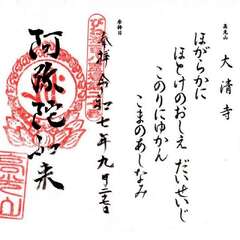 高光山
大清寺
ほがらかに
ほとけのおしえ だいせいじ
このりにゆかん
こまのあしなみ
参拝日
奉拝 令和七年九月二五日
阿弥陀如来